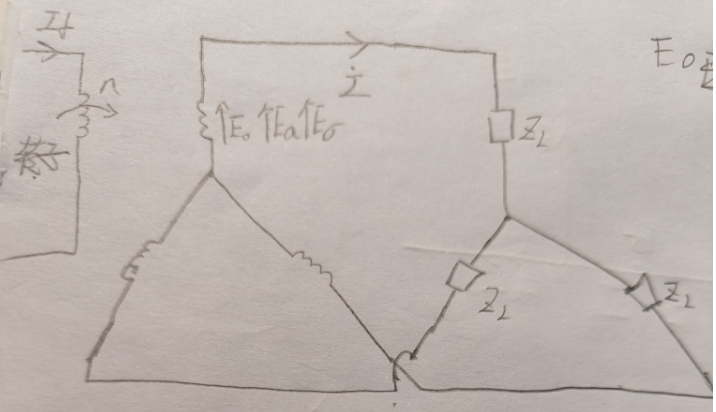 If
n
转子
İ
E₀ Ea Eσ
Z_L
Z_L
Z_L
E₀